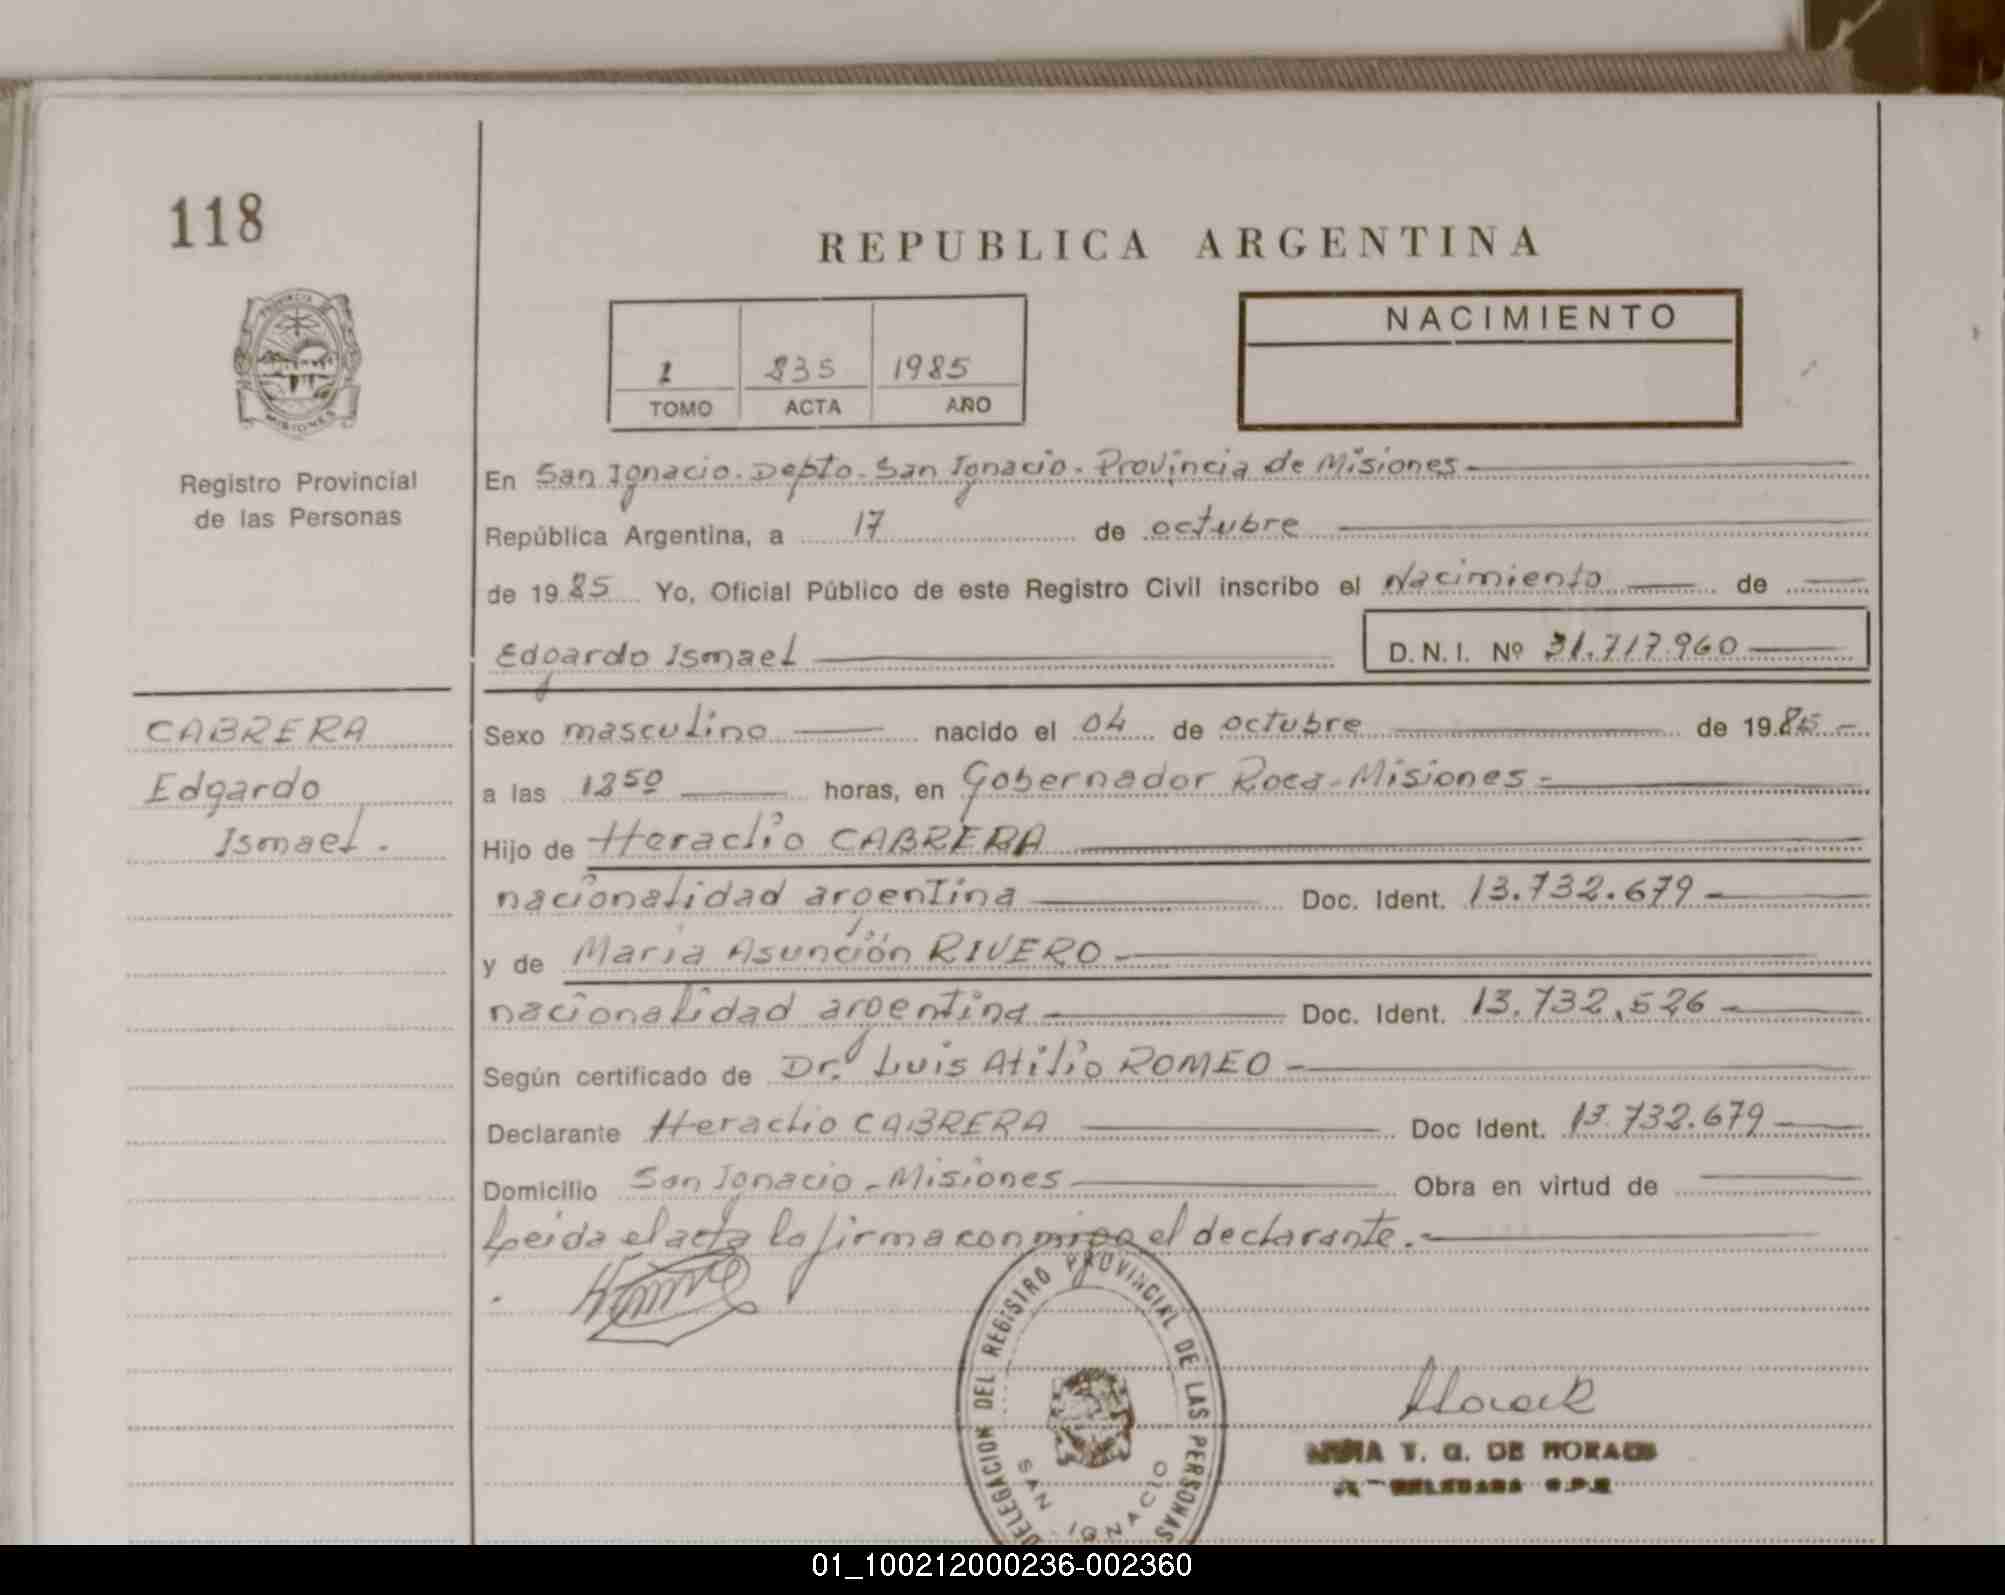 118
REPUBLICA ARGENTINA
PROVINCIA DE
MISIONES
NACIMIENTO
1 835 1985
TOMO ACTA AÑO
Registro Provincial
de las Personas
En San Ignacio. Depto. San Ignacio. Provincia de Misiones
República Argentina, a 17 de octubre
de 1985 Yo, Oficial Público de este Registro Civil inscribo el Nacimiento de
Edgardo Ismael D.N.I. Nº 31.717.960
CABRERA
Edgardo
Ismael.
Sexo masculino nacido el 04 de octubre de 1985
a las horas, en Gobernador Roca-Misiones
Hijo de Heraclio CABRERA
nacionalidad argentina Doc. Ident. 13.732.679
y de Maria Asunción RIVERO
nacionalidad argentina Doc. Ident. 13.732.526
Según certificado de Dr. Luis Atilio ROMEO
Declarante Heraclio CABRERA Doc Ident. 13.732.679
Domicilio San Ignacio-Misiones Obra en virtud de
Leida el acta la firma conmigo el declarante.
DELEGACION DEL REGISTRO PROVINCIAL DE LAS PERSONAS
SAN IGNACIO
T. G. DE MORAES
01_100212000236-002360